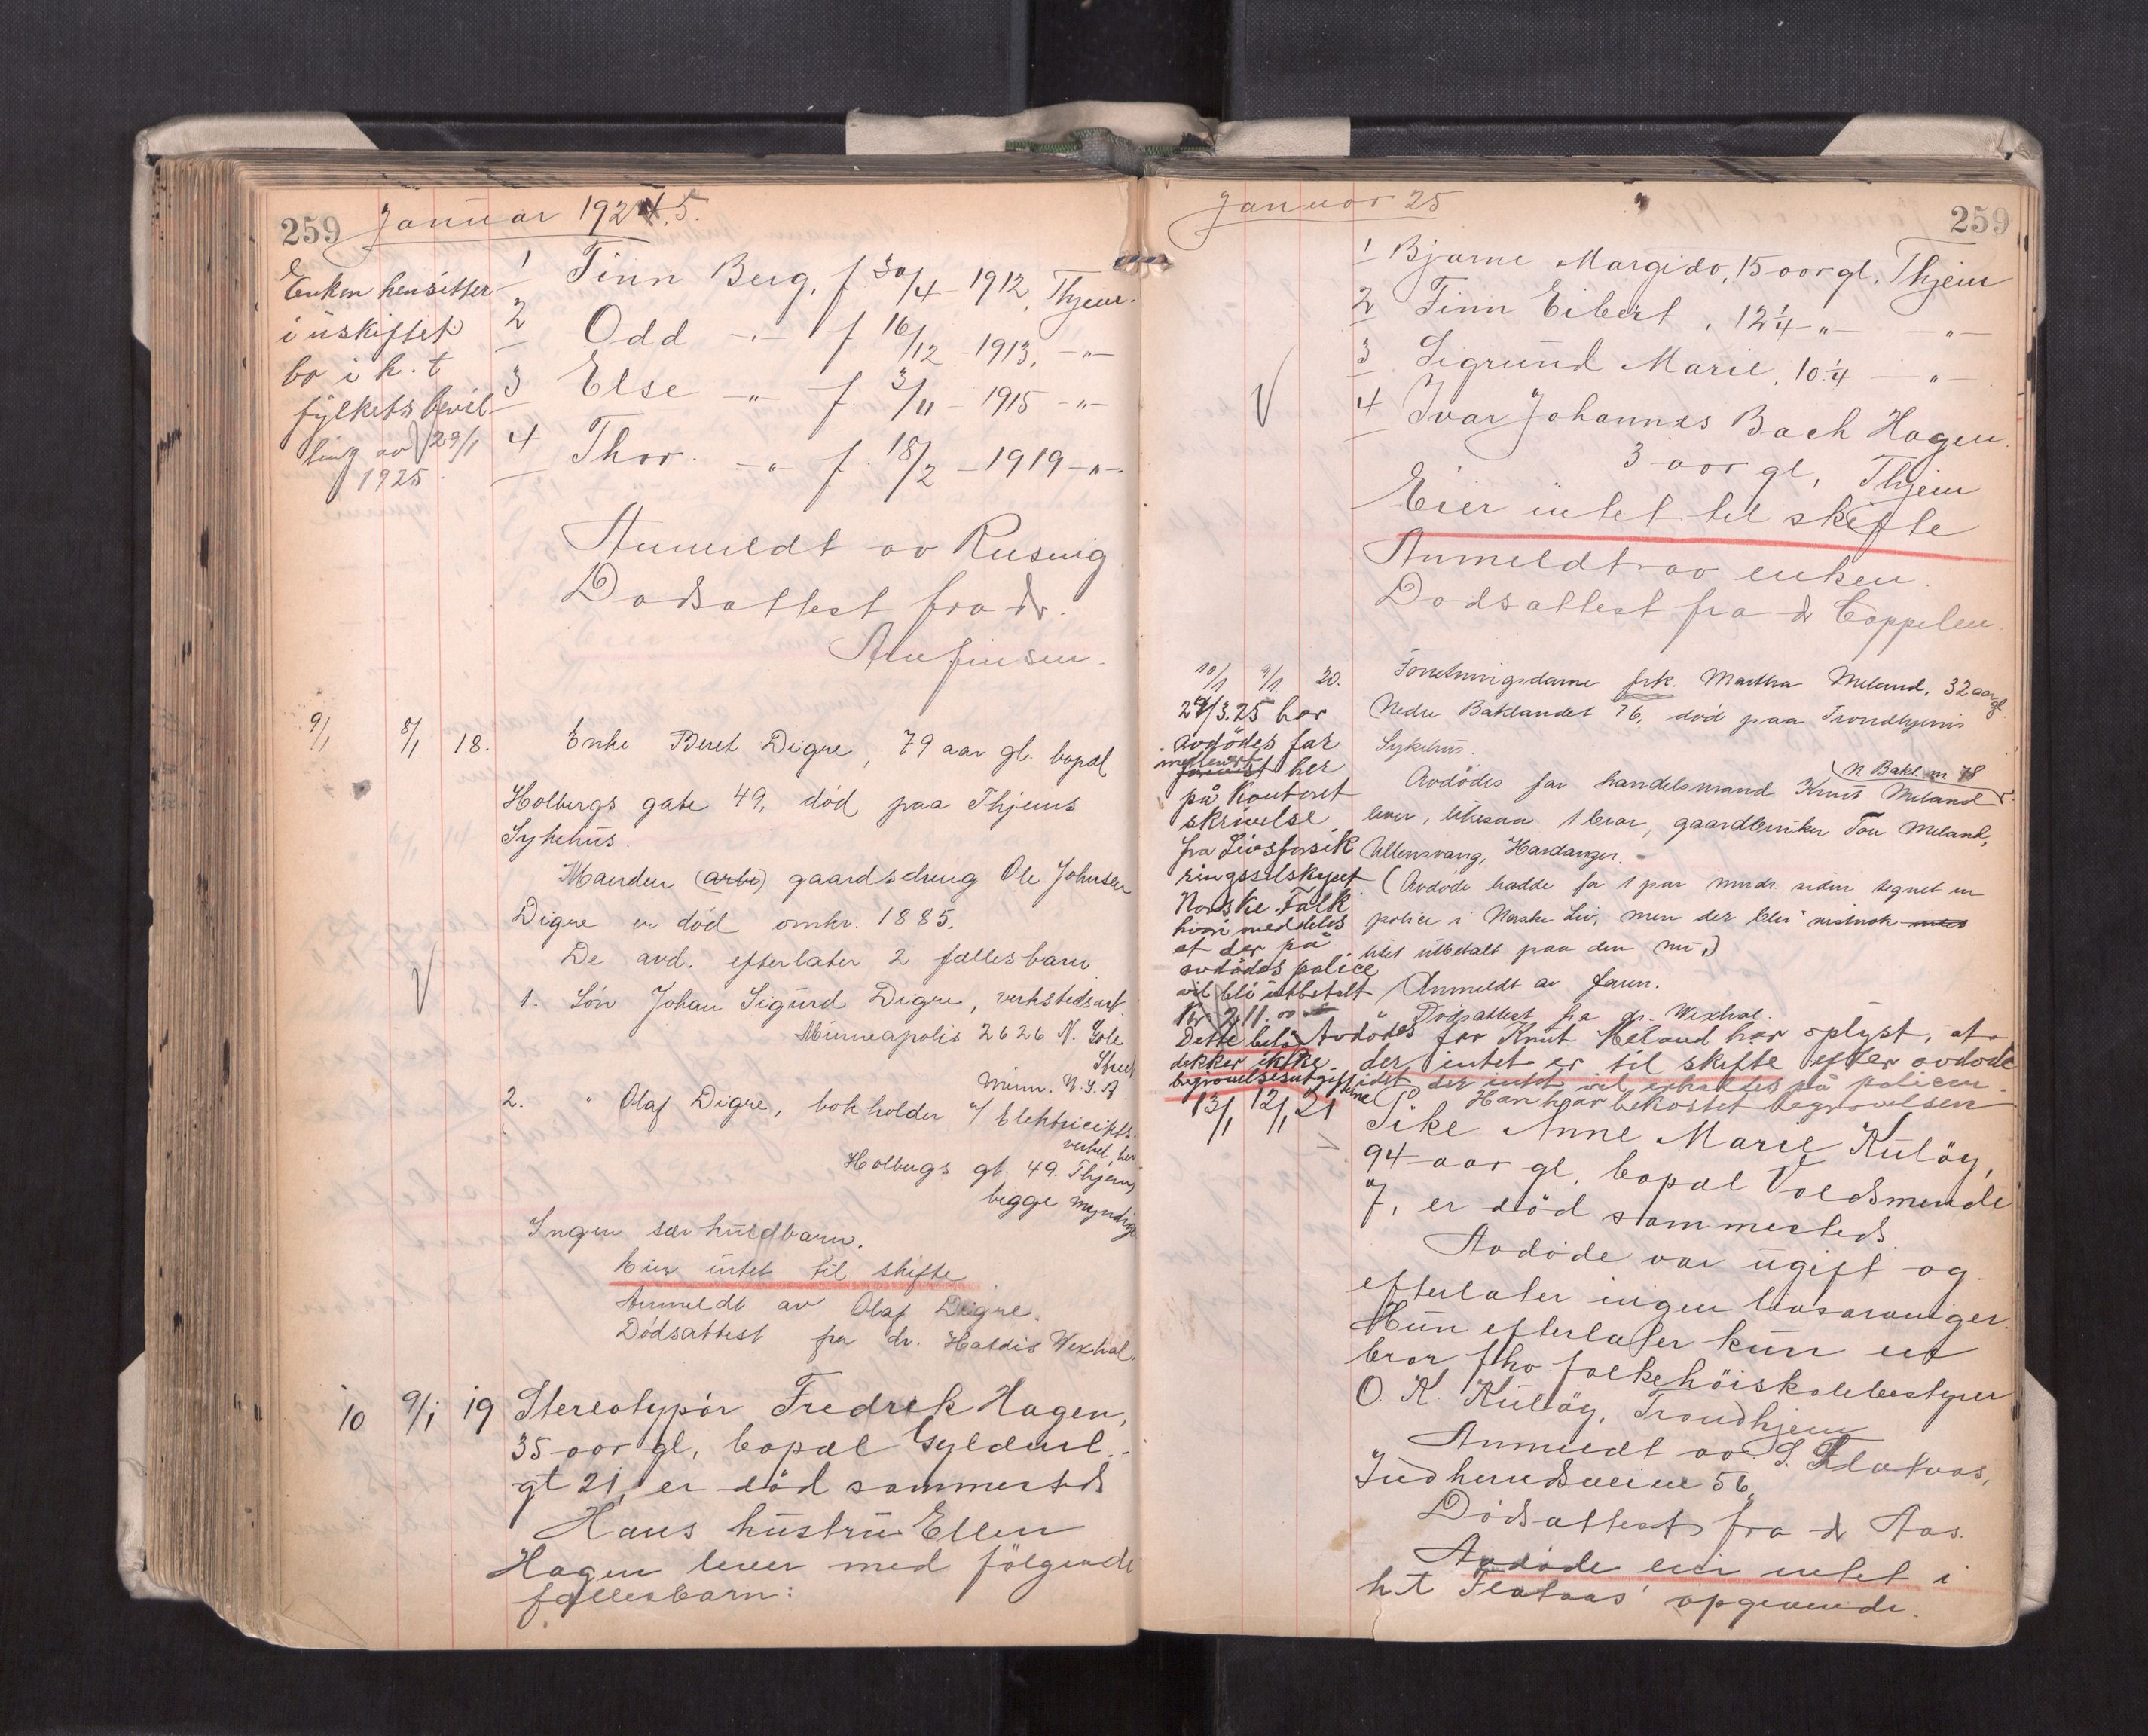 259 Januar 1924.5.
Enken hensitter
i uskiftet
bo i h. t
fylkets bevil-
ling av 29/1
1925.
1 Finn Berg, f. 30/4 - 1912, Thjem.
2 Odd -"- f 16/12 - 1913, -"-
3 Else -"- f. 3/11 - 1915 -"-
4 Thor -"- f. 18/2 - 1919 -"-
Anmeldt av Rusvig
Dødsattest fra dr.
Arnfinsen.
9/1 8/1 18. Enke Beret Digre, 79 aar gl. bopæl
Holbergs gate 49, død paa Thjems
Sykehus.
Manden (arb) gaardsdreng Ole Johnsen
Digre er død omkr. 1885.
De avd. efterlater 2 fællesbarn
1. Søn Johan Sigurd Digre, verkstedsarb.
Minneapolis 2626 N. Gole
Street
Minn. U.S.A
2. " Olaf Digre, bokholder v/ Elektricitets-
verket, her
Holbergs gt. 49. Thjem,
begge myndige
Ingen særkuldbarn.
Eier intet til skifte
Anmeldt av Olaf Digre.
Dødsattest fra dr. Haldis Wexhal.
10 9/1 19 Stereotypør Fredrik Hagen,
35 aar gl, bopæl Gyldenl.-
gt 21, er død sammesteds
Hans hustru Ellen
Hagen lever med følgende
fællesbarn:
Januar 25 259
1 Bjarne Margido, 15 aar gl, Thjem
2 Finn Eibert, 12 1/4 -"- -"-
3 Sigrund Marie, 10 1/4 -"-
4 Ivar Johannes Bach Hagen.
3 aar gl, Thjem
Eier intet til skifte
Anmeldt av enken.
Dødsattest fra dr Coppelen.
10/1 9/1. 20. Forretningsdame frk. Martha Meland, 32 aar gl.
Nedre Baklandet 76, død paa Trondhjems
Sykehus.
N Bakl. nr 78
Avdødes far handelsmand Knut Meland
lever, likesaa 1 bror, gaardbruker Tore Meland,
Ullensvang, Hardanger.
(Avdøde hadde for 1 par mndr. siden tegnet en
police i Norske Liv, men der blir nistnok
intet utbetalt paa den nu.)
Anmeldt av faren.
" Dødsattest fra dr. Wexhal.
Avdødes far Knut Meland har oplyst, at
der intet er til skifte efter avdøde
idet der intet vil erholdes på policen.
Han har bekostet begravelsen
24/3.25 har
avdødes far
her
på Kontoret
skrivelse
fra Livsforsik
ringsselskapet
Norske Folk
hvori meddeles
at der på
avdødes police
vil bli utbetalt
kr. 211.00
Dette beløp
dekker ikke
begravelsesutgiftene
13/1 12/1 21 Pike Anne Marie Kuløy,
94 aar gl, bopæl Voldsminde
7, er død sammesteds.
Avdøde var ugift og
efterlater ingen livsarvinger.
Hun efterlater kun en
bror fhv folkehøiskolebestyrer
O. K. Kuløy, Trondhjem
Anmeldt av S. Flataas,
Indherredsveien 56,
Dødsattest fra dr Aas.
Avdøde eier intet i
h.t Flataas' opgivende.